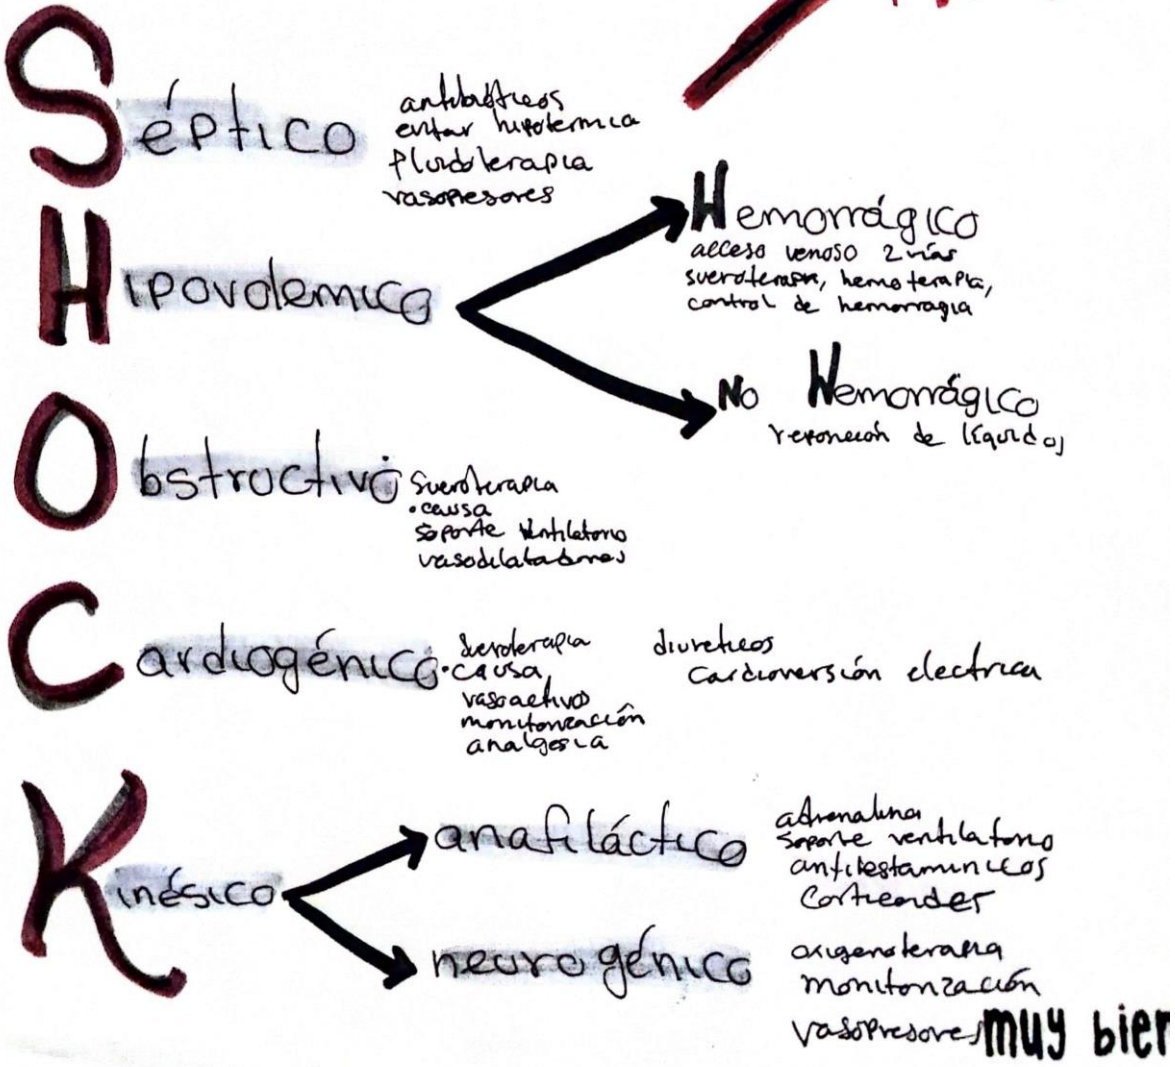 Séptico
antibióticos
evitar hipotermica
fluidoterapia
vasopresores
Hipovolemico
Hemorrágico
acceso venoso 2 vías
sueroterapia, hemoterapia,
control de hemorragia
No Hemorrágico
reposición de líquidos
Obstructivo
Sueroterapia
•causa
soporte ventilatorio
vasodilatadores
Cardiogénico
sueroterapia
•causa
vasoactivo
monitorización
analgesia
diureticos
cardioversión electrica
Kinésico
anafiláctico
adrenalina
soporte ventilatorio
antihistaminicos
neurogénico
oxigenoterapia
monitorización
vasopresores
muy bien